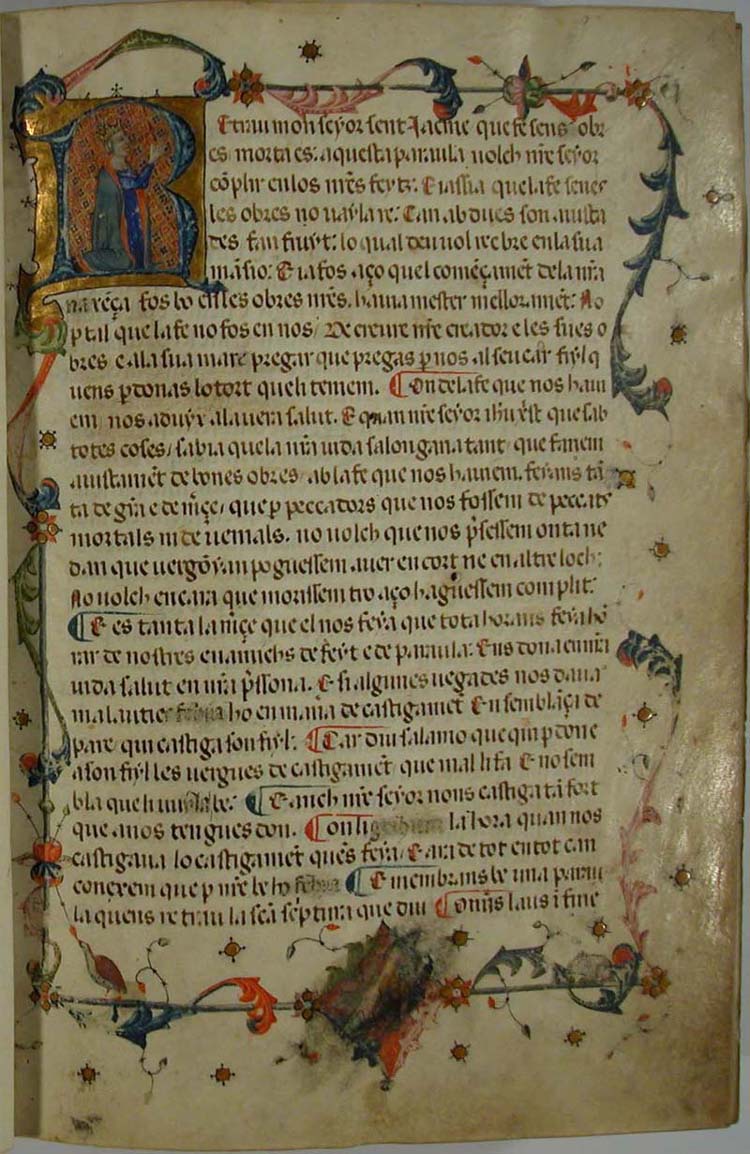 R Etrau mon seyor sent Jacme que fe sens obr
es morta es: aquesta paraula uolch nre seyor
cōplir en los nr̄es feyts: E ia ssia que la fe senes
les obres no uayla re: Can abdues son aiusta
des fan fruyt: lo qual deu uol reebre en la sua
māsio: E ia fos aço quel começamēt de la nr̄a
naxēça fos bo en les obres nr̄es. hauia mester melloramēt: No
p tal que la fe no fos en nos / De creure nr̄e creador e les sues o
bres e a la sua mare pregar que pregas p nos al seu car fiyl q
uens pdonas lo tort queli teniem. On de la fe que nos hau
em nos aduyx a la uera salut. E quan nr̄e seyor ihū xp̄st que sab
totes coses / sabia quela nr̄a uida salongaua tant que fariem
aiustamēt de bones obres ab la fe que nos hauiem. feyans tā
ta de grā e de mc̄e / que p peccadors que nos fossem de peccats
mortals ni de uenials. no uolch que nos pr̄sessem onta ne
dan que uergoyan poguessem auer en cort ne en altre loch:
No uolch encara que morissem tro aço haguessem complit:
E es tanta la mc̄e que el nos feya que tota hora nȳs feya hō
rar de nostres enamichs de feyt e de paraula: Ens dona en nr̄a
uida salut en nr̄a pr̄ssona. E si algunes uegades nos daua
malauties ho en maā de castigamēt En semblāça de
pare qui castiga son fiyl: Car diu salamo que qui pdone
a son fiyl les uergues de castigamēt que mal li fa E no sem
bla que li
E anch nr̄e seyor nons castiga tā fort
que a nos tengues don. On la hora quan nos
castigaua lo castigamēt quēs feya: E ara de tot en tot can
conexem que p nr̄e be ho E membrans be una parau
la quens retrau la scā sc̄ptura que diu Om̄s laus i fine